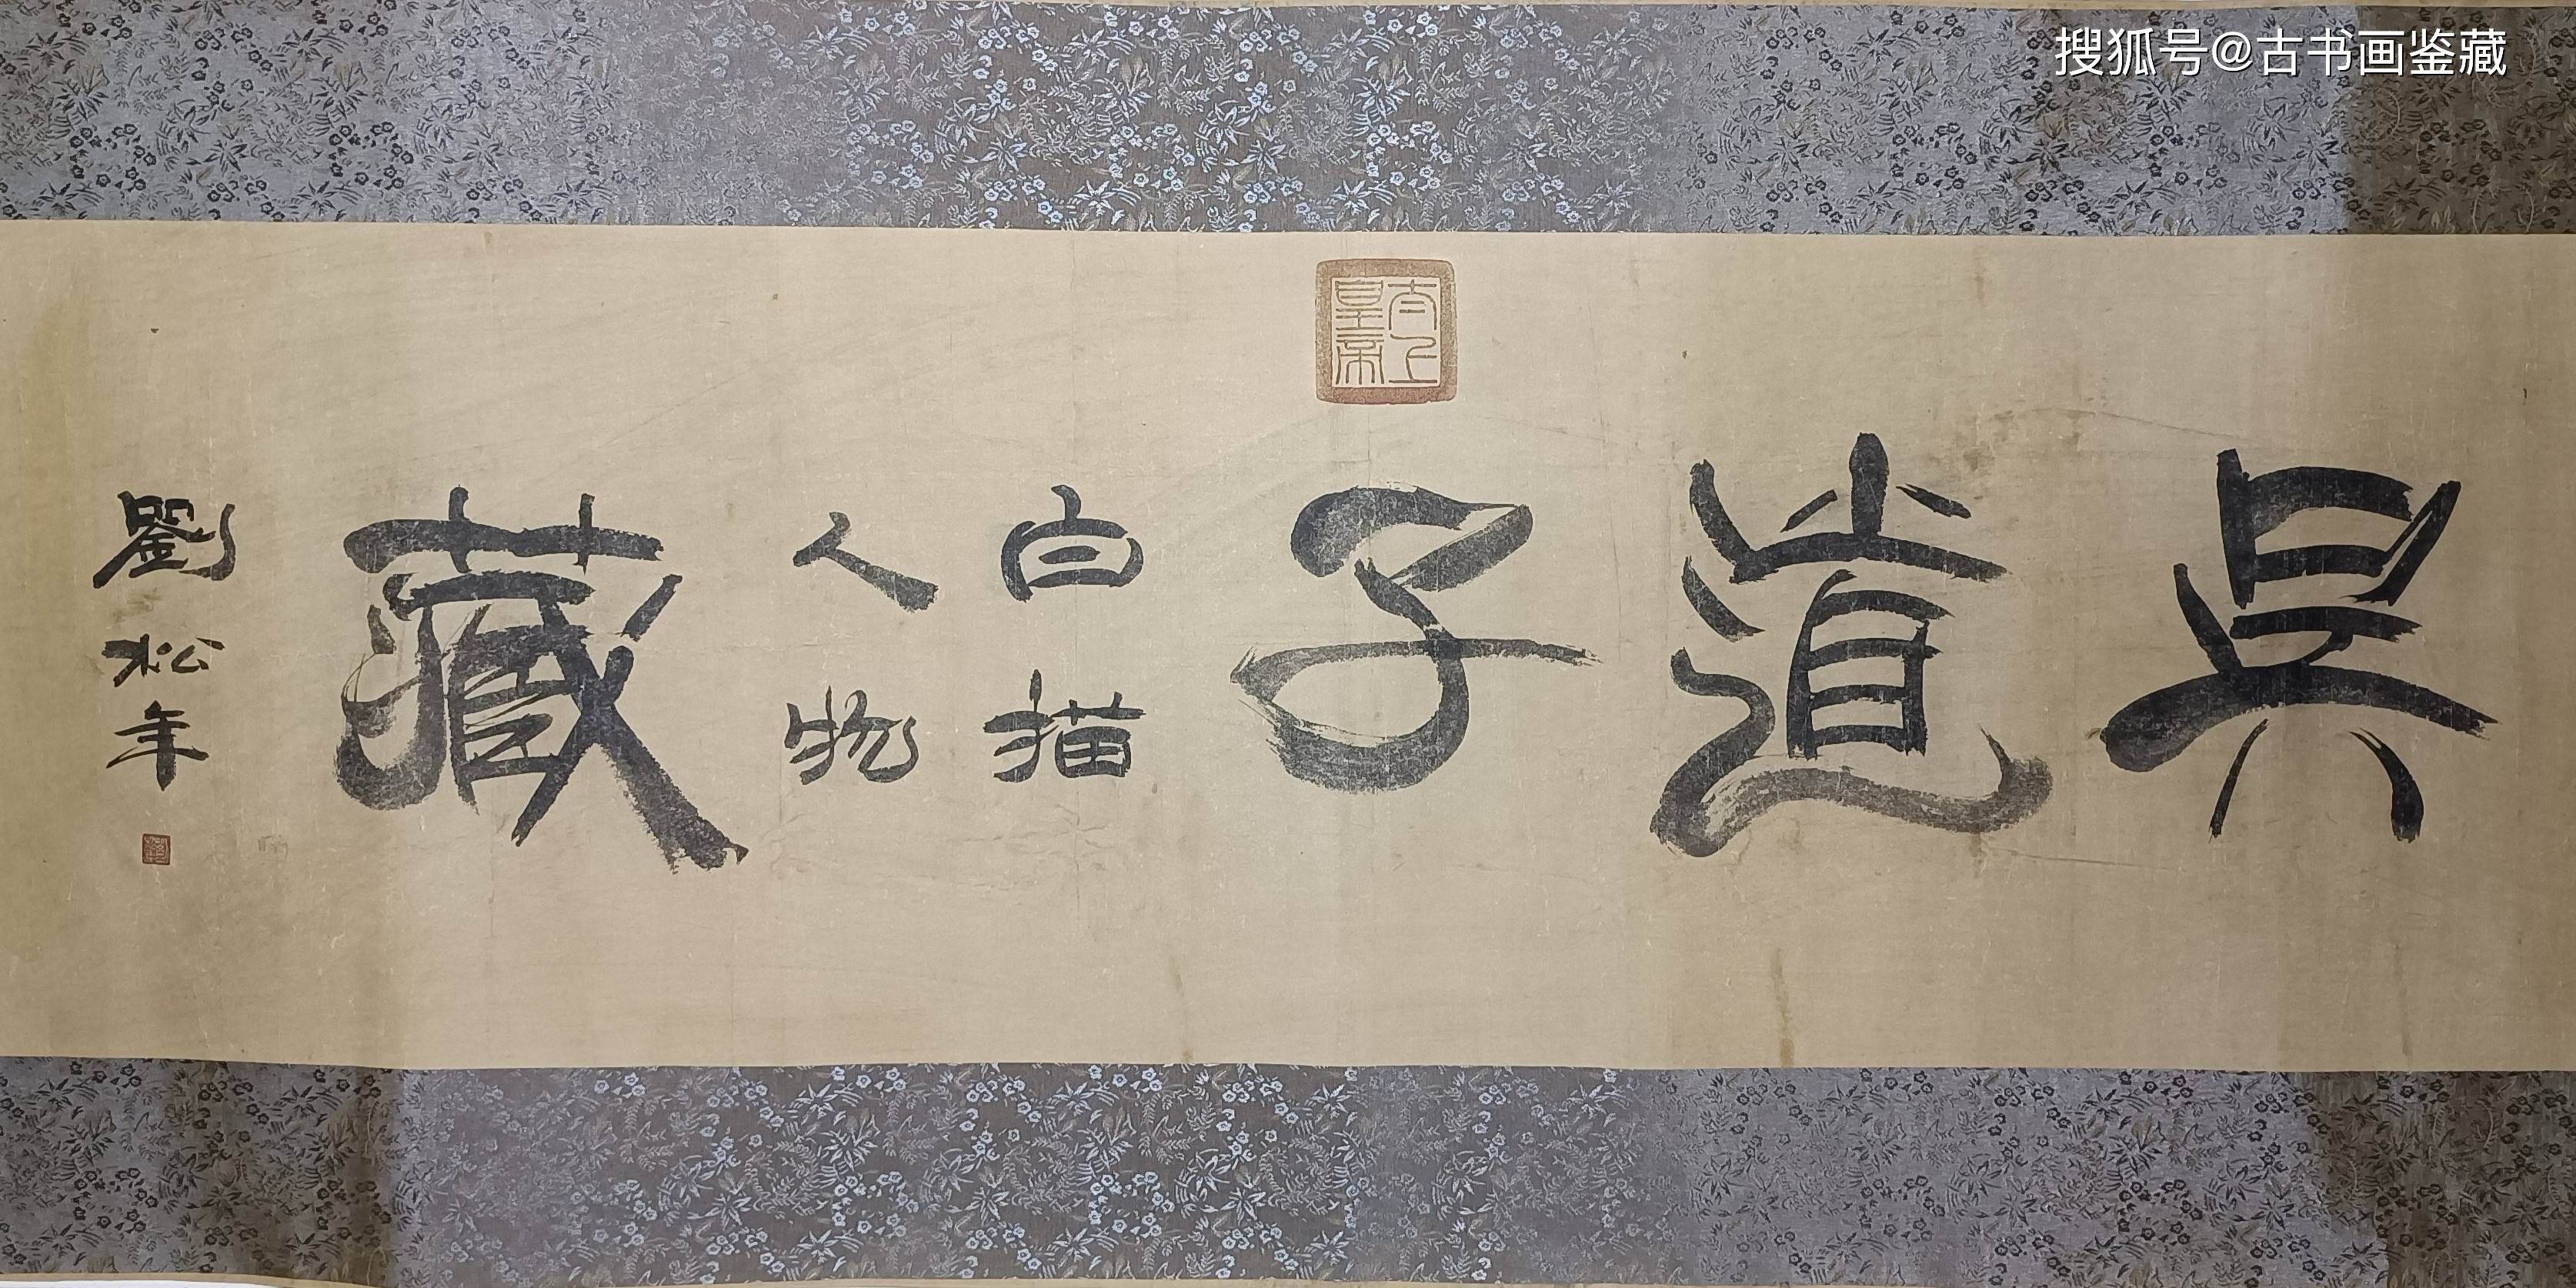 搜狐号@古书画鉴藏
太上
皇帝
吳道子
白描
人物
藏
劉松年